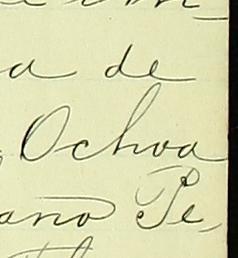 a de
Ochoa
ano Pe,